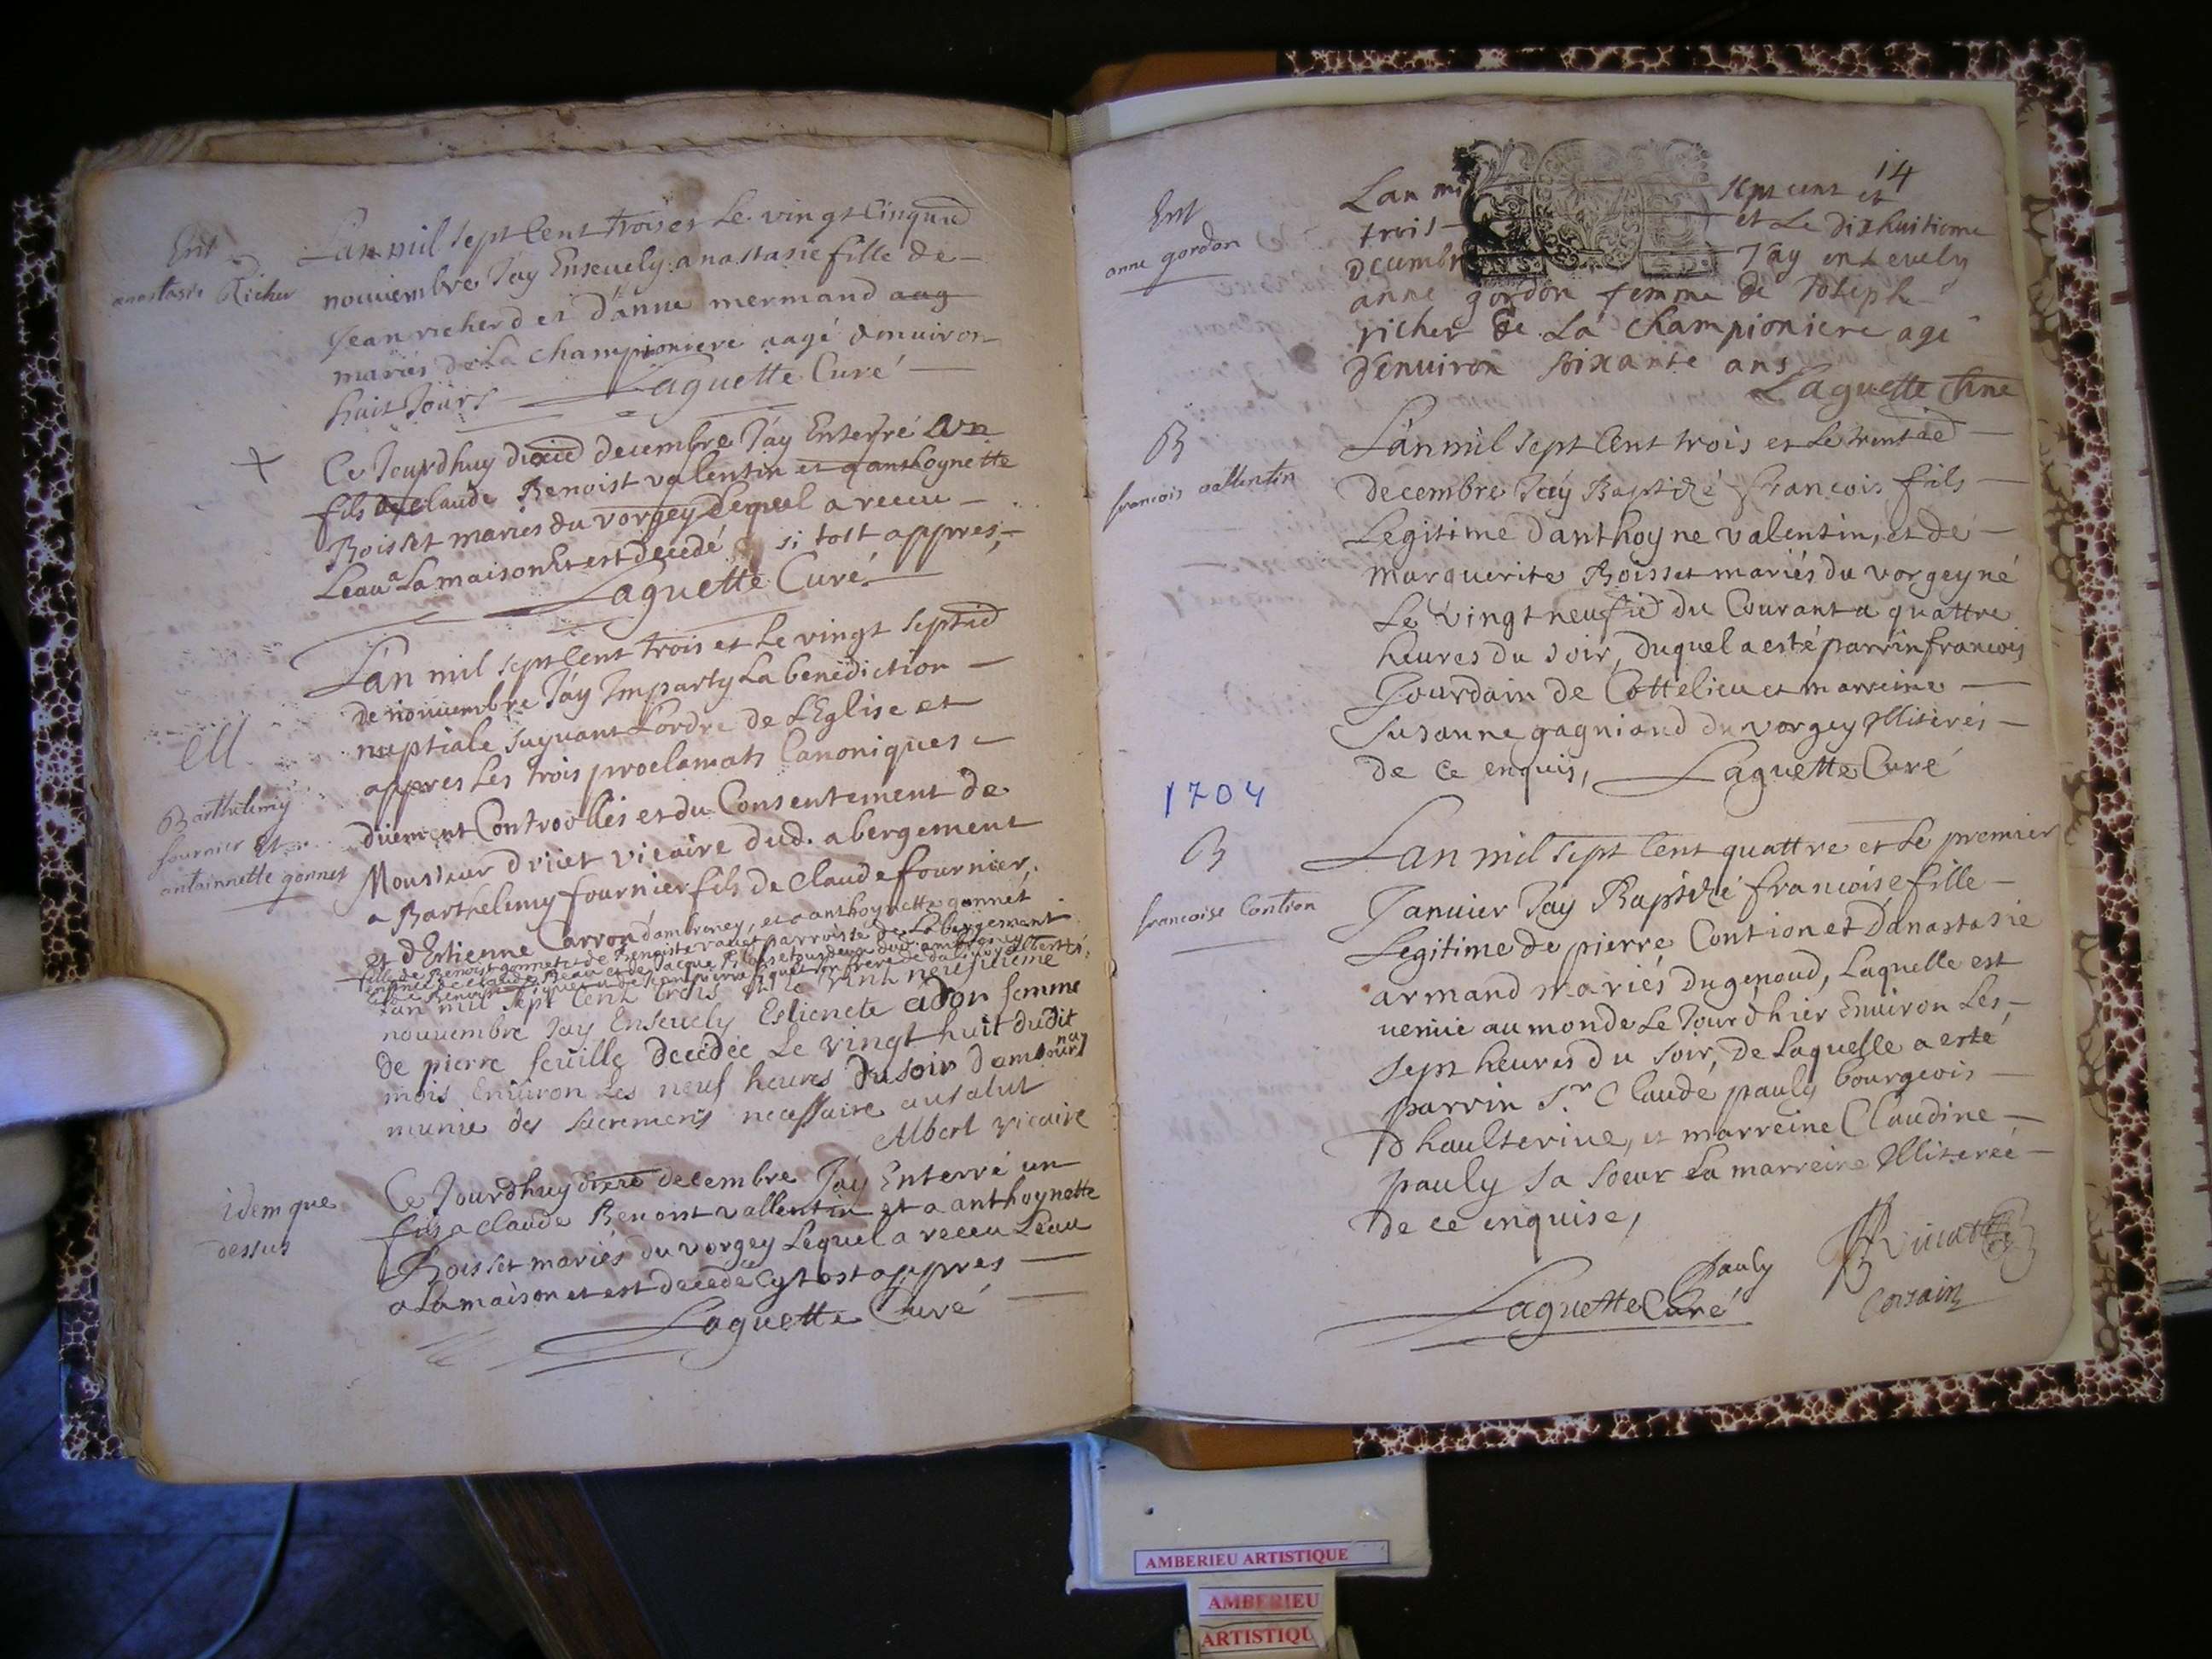 Ent
anastasie Richer
Lan mil sept Cent trois et Le vingt Cinquie
nouvembre J'ay Enseuely anastasie fille de
Jean richerd et d'anne mermand aag
mariés de La championiere aagé denuiron
huit Jours Laguette Curé
+
Ce Jourdhuy dixie decembre J'ay Enterré un
fils a Claude Benoist valentin et a anthoynette
Boisset mariés du vorgey Lequel a receu
Leau a La maison et est decedé si tost appres,
Laguette Curé
M
Barthelemy
fournier Et
antoinnette gonnet
L'an mil sept Cent trois et Le vingt septie
de nouuembre J'ay Imparty La benediction
nuptiale suyuant L'ordre de L'Eglise et
appres Les trois proclamats Canoniques
düement Controolles et du Consentement de
Monsieur vicaire dud. abergement
a Barthelemy fournier fils de Claude fournier,
et d'Estienne Carron d'ambroney, et a anthoynette gonnet
fille de Benoist gonnet et de Benoiste parroisse de Labergement
Lan mil sept Cent trois et le vint neufuieme
nouuembre Jay Enseuely Estienete adon femme
de pierre feüille decedée Le vingt huit dudit
mois Enuiron Les neuf heures du soir
munie des sacremens necessaire au salut
Albert vicaire
idem que
dessus
Ce Jourdhuy dixie decembre J'ay Enterré un
fils a claude Benoist vallentin et a anthoynette
Boisset mariés du vorgey Lequel a receu L'eau
a La maison et est decedé Cy tost appres
Laguette Curé
14
Ent
anne gordon
Lan mi sept cent et
trois et Le dixhuitieme
decembr Jay enseuely
anne gordon femme de Joseph
richer de La championiere agé
d'enuiron soixante ans
Laguette Cure
B
francois vallentin
L'an mil sept Cent trois et Le trentie
decembre J'ay Baptizé francois fils
Legitime d'anthoyne valentin, et de
marguerite Boisset mariés du vorgey né
Le vingt neufie du Courant a quattre
heures du soir, duquel a esté parrin francois
Jourdain de Cottelieu et marreine
Susanne gagniaud du vorgey Illiterés
de Ce enquis, Laguette Curé
1704
B
francoise Contion
Lan mil sept Cent quattre et Le premier
Januier J'ay Baptizé francoise fille
Legitime de pierre Contion et d'anastasie
armand mariés du genoud, Laquelle est
venüe au monde Le Jourdhier Enuiron Les
sept heures du soir, de Laquelle a esté
parrin Sr Claude pauly bourgeois
d'haulteriue, et marreine Claudine
pauly sa soeur La marreine Illiterée
de ce enquise,
Pauly
Laguette Curé
AMBERIEU ARTISTIQUE
AMBERIEU
ARTISTIQU